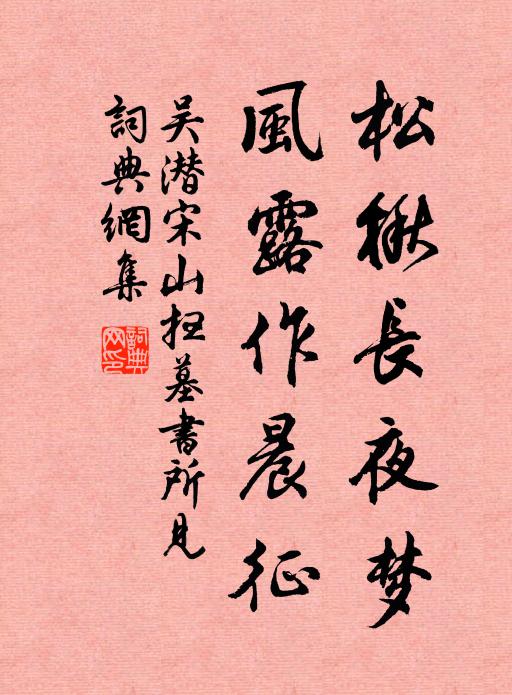 松楸長夜梦
風露作晨征
吴潜宋山扫墓書所見
詞典網集
詞典網印